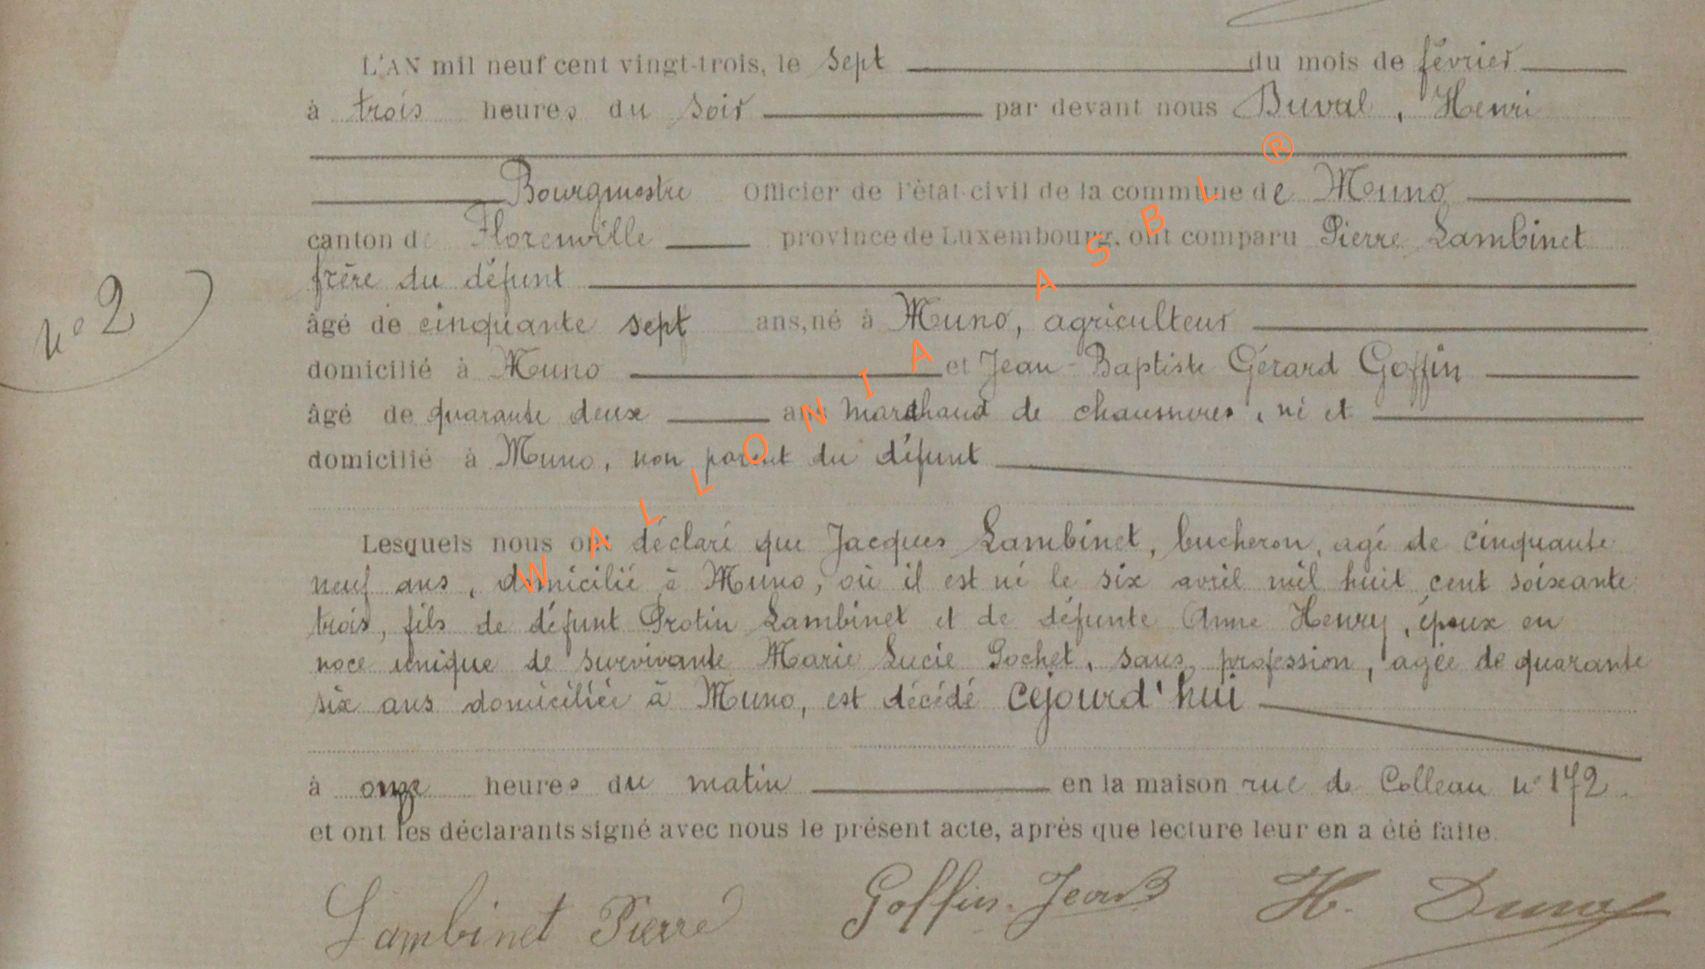 L'AN mil neuf cent vingt-trois, le sept du mois de février
à trois heures du soir par devant nous Duval, Henri
Bourgmestre Officier de l'état-civil de la commune de Muno
canton de Florenville province de Luxembourg, ont comparu Pierre Lambinet
frère du défunt
âgé de cinquante sept ans, né à Muno, agriculteur
n° 2
domicilié à Muno et Jean-Baptiste Gérard Goffin
âgé de quarante deux ans marchand de chaussures, né et
domicilié à Muno, non parent du défunt
Lesquels nous ont déclaré que Jacques Lambinet, bucheron, agé de cinquante
neuf ans, domicilié à Muno, où il est né le six avril mil huit cent soixante
trois, fils de défunt Protin Lambinet et de défunte Anne Henry, époux en
noce unique de survivante Marie Lucie Gochet, sans profession, agée de quarante
six ans domiciliée à Muno, est décédé cejourd'hui
à onze heures du matin en la maison rue de Colleau n° 172.
et ont les déclarants signé avec nous le présent acte, après que lecture leur en a été faite.
Lambinet Pierre Goffin-Jean B H. Duval
WALLONIA ASBL ®